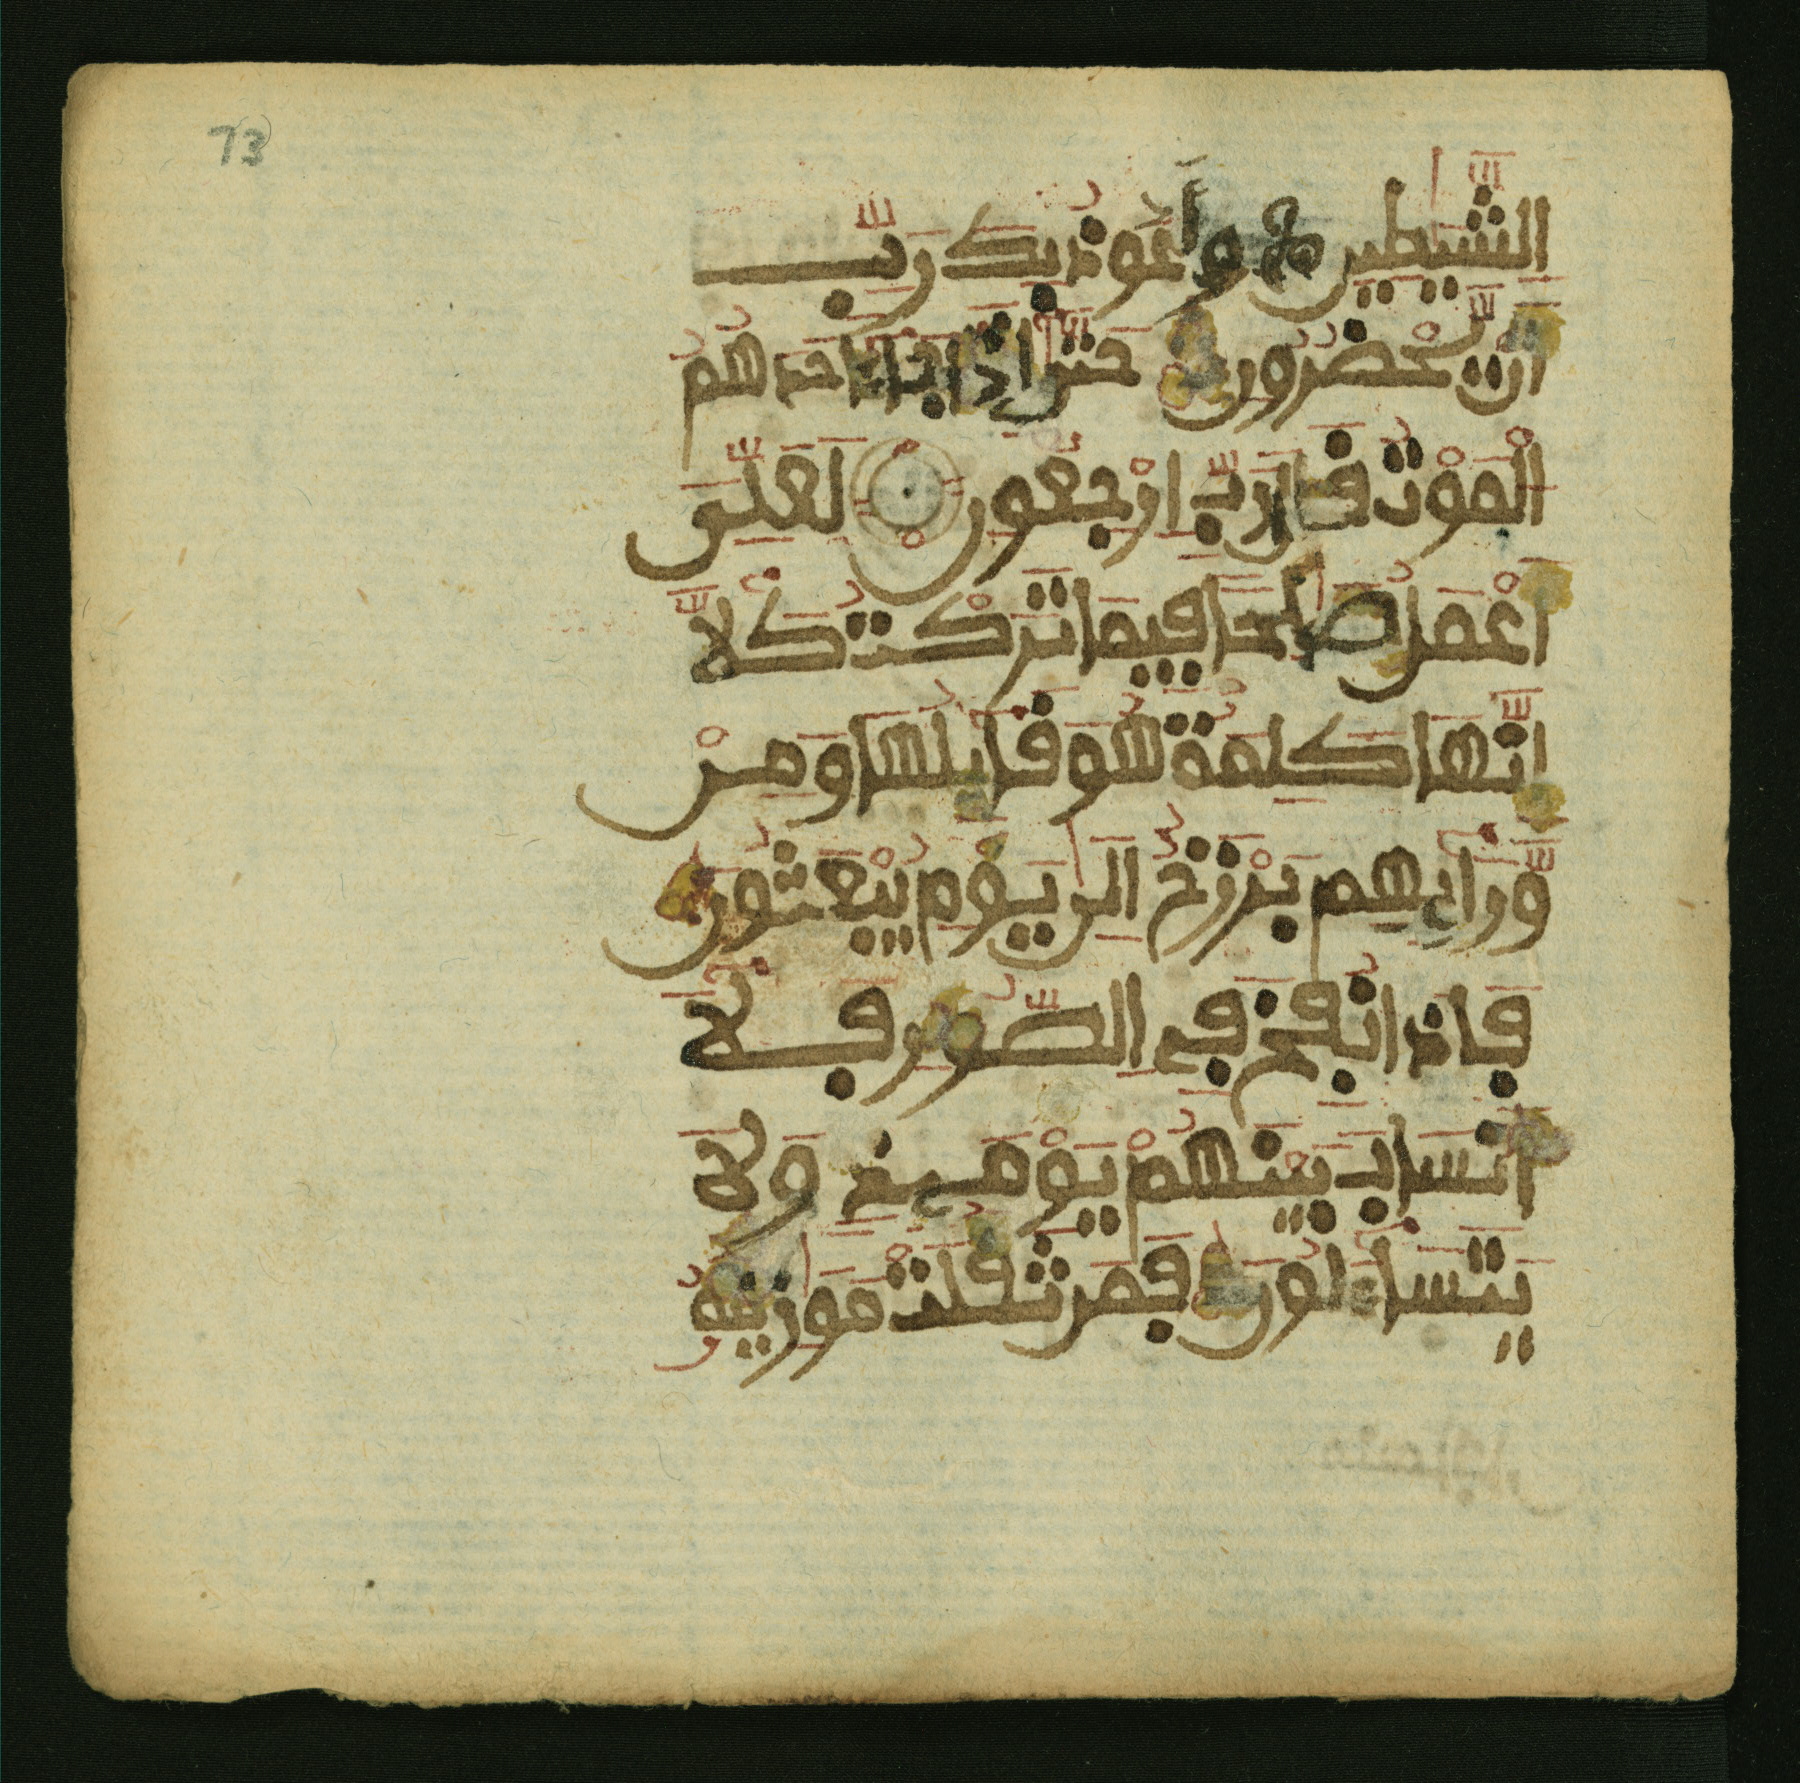 73
الشَّيٰطِينِ وَأَعُوذُ بِكَ رَبِّ
أَنْ يَّحْضُرُونِ حَتّٰىٓ إِذَا جَآءَ احَدَهُمُ
الْمَوْتُ قَالَ رَبِّ ارْجِعُونِ لَعَلِّيَ
أَعْمَلُ صَٰلِحاً فِيمَا تَرَكْتُ كَلَّآ
إِنَّهَا كَلِمَةٌ هُوَ قَآئِلُهَا وَمِنْ
وَّرَآئِهِم بَرْزَخٌ إِلَىٰ يَوْمِ يُبْعَثُونَ
فَإِذَا نُفِخَ فِي الصُّورِ فَلَآ
أَنسَابَ بَيْنَهُمْ يَوْمَئِذٍ وَلَا
يَتَسَآءَلُونَ فَمَن ثَقُلَتْ مَوَٰزِينُهُ